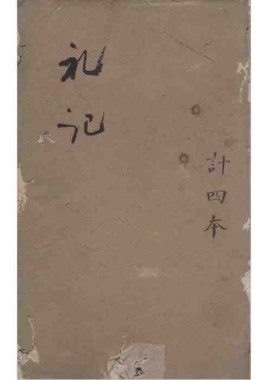 礼记
計四本